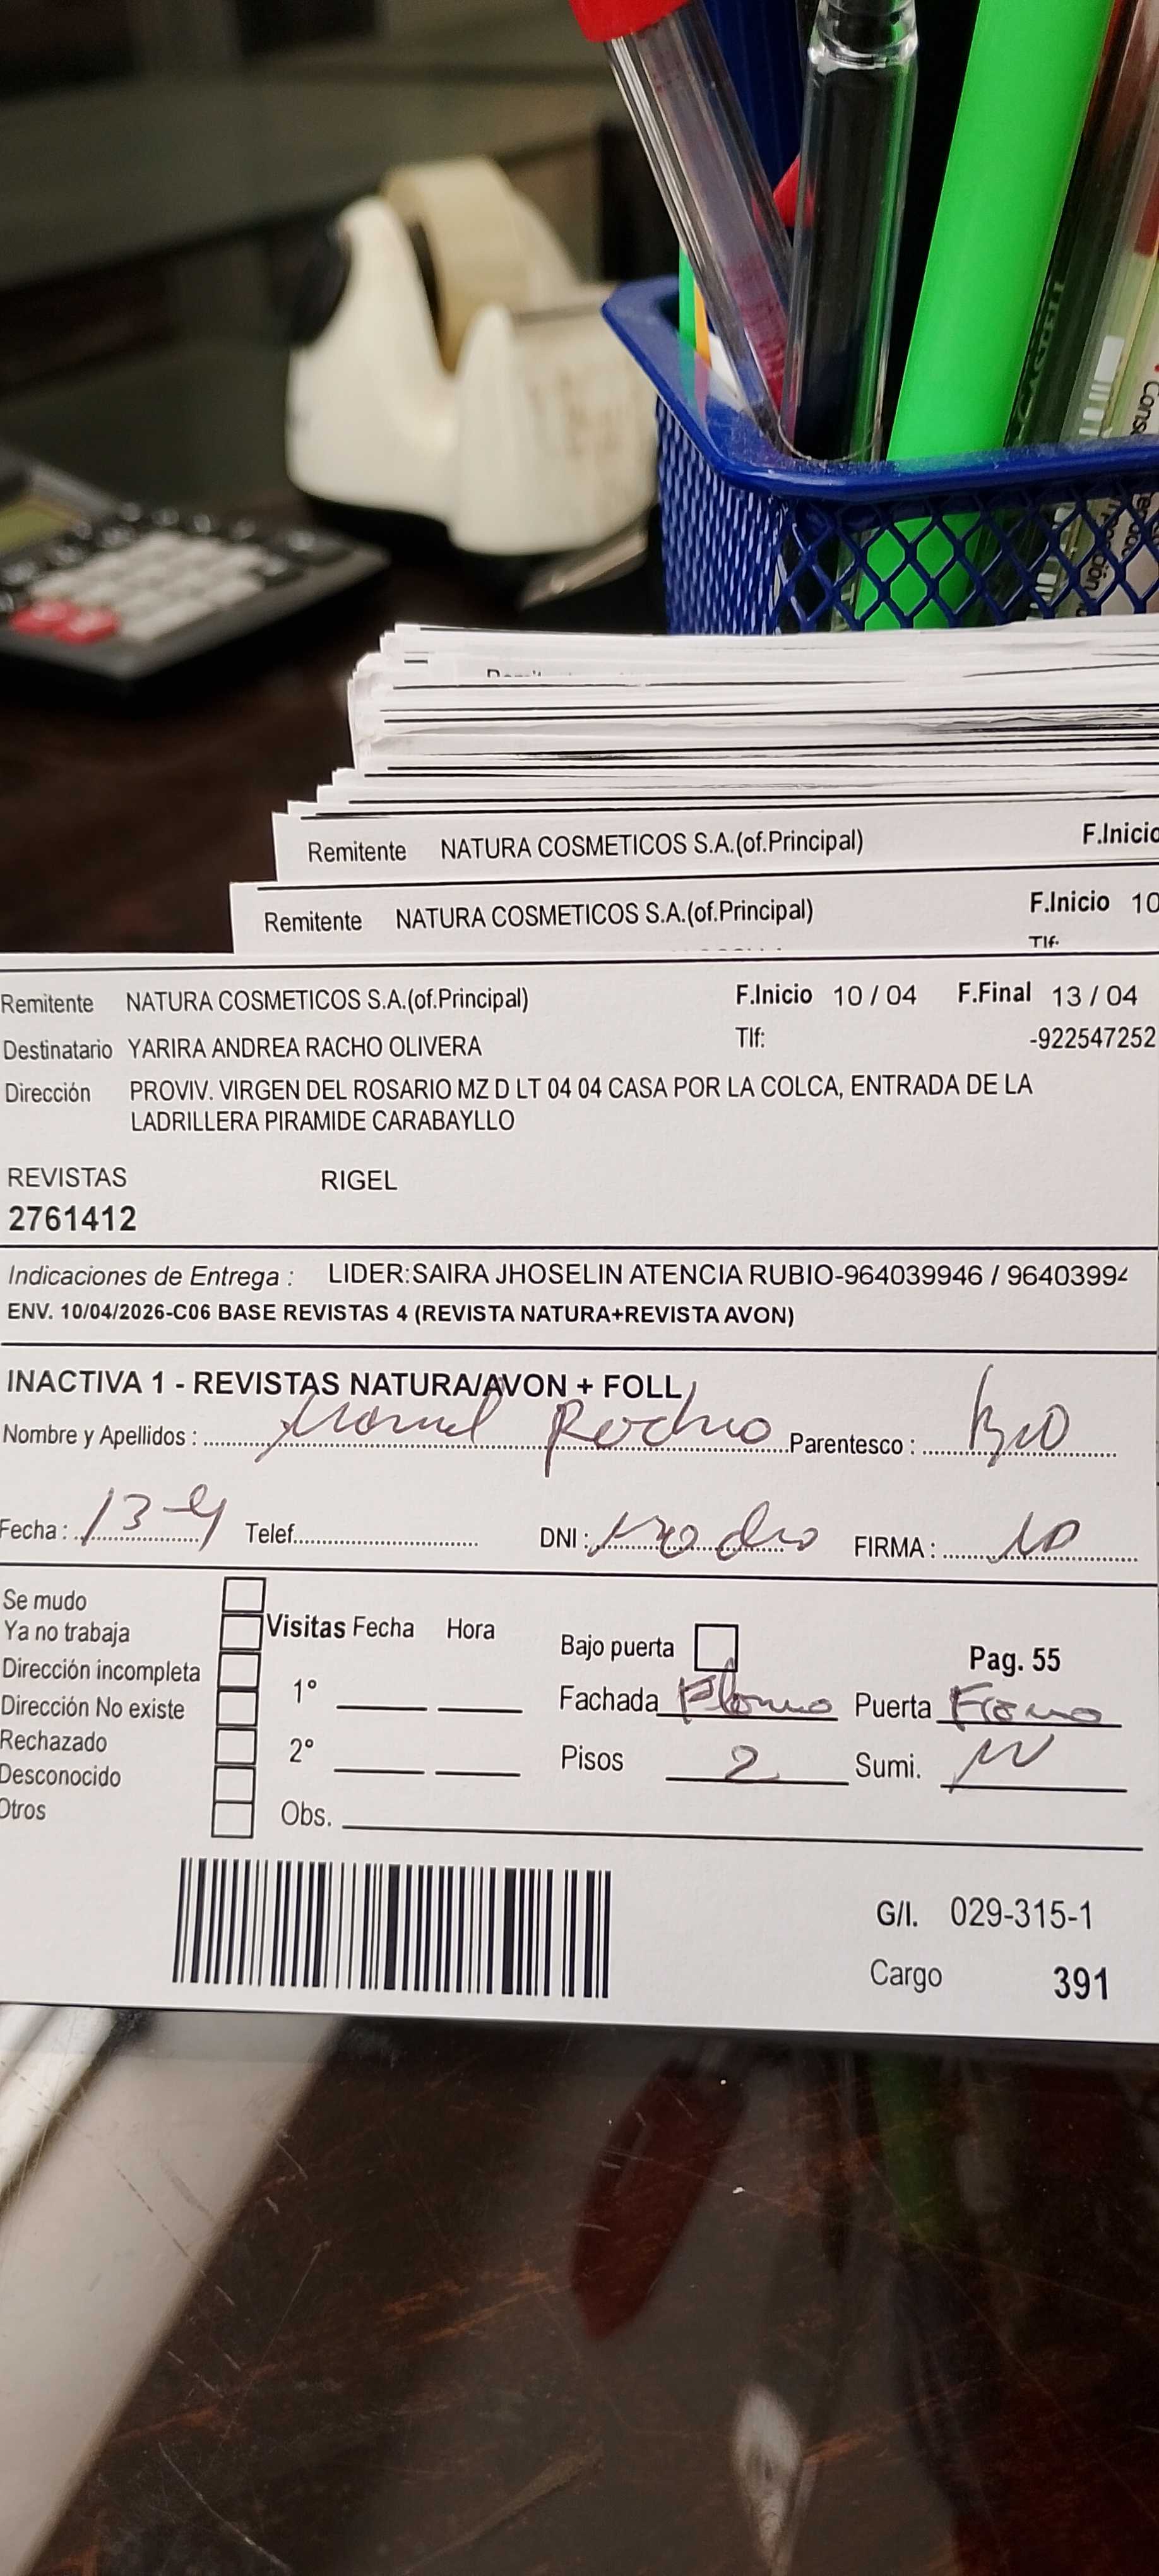 Remitente NATURA COSMETICOS S.A.(of.Principal) F.Inicio
Remitente NATURA COSMETICOS S.A.(of.Principal) F.Inicio 10
Tlf.
Remitente NATURA COSMETICOS S.A.(of.Principal) F.Inicio 10 / 04 F.Final 13 / 04
Destinatario YARIRA ANDREA RACHO OLIVERA Tlf: -922547252
Dirección PROVIV. VIRGEN DEL ROSARIO MZ D LT 04 04 CASA POR LA COLCA, ENTRADA DE LA
LADRILLERA PIRAMIDE CARABAYLLO
REVISTAS RIGEL
2761412
Indicaciones de Entrega : LIDER:SAIRA JHOSELIN ATENCIA RUBIO-964039946 / 96403994
ENV. 10/04/2026-C06 BASE REVISTAS 4 (REVISTA NATURA+REVISTA AVON)
INACTIVA 1 - REVISTAS NATURA/AVON + FOLL
Nombre y Apellidos : Parentesco :
Fecha : 13 Telef. DNI : FIRMA :
Se mudo
Ya no trabaja
Dirección incompleta
Dirección No existe
Rechazado
Desconocido
Otros
Visitas Fecha Hora
1°
2°
Obs.
Bajo puerta Pag. 55
Fachada Plomo Puerta
Pisos 2 Sumi.
G/I. 029-315-1
Cargo 391